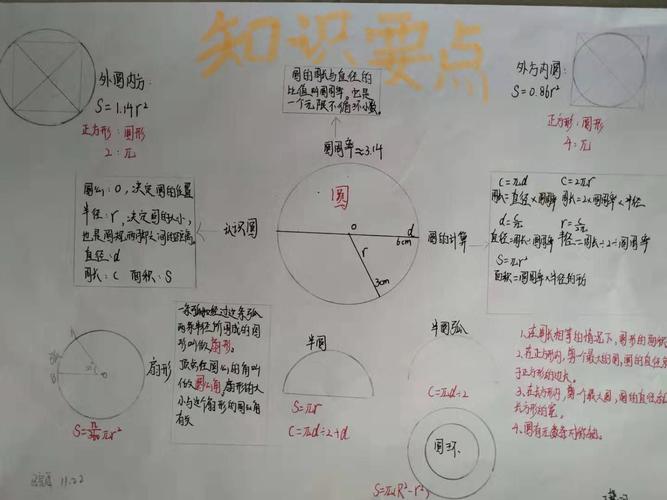 知识要点
外圆内方:
S=1.14r²
正方形:圆形
2:π
圆的周长与直径的
比值叫圆周率。它是
一个无限不循环小数。
外方内圆:
S=0.86r²
正方形:圆形
4:π
圆周率≈3.14
圆心:O,决定圆的位置
半径:r,决定圆的大小,
也是圆规两脚之间的距离。
直径:d
周长:C 面积:S
认识圆
圆
O
d
6cm
r
3cm
圆的计算
C=πd C=2πr
周长=直径×圆周率 周长=2×圆周率×半径
直径=周长÷圆周率 半径=周长÷2÷圆周率
S=πr²
面积=圆周率×半径的平方
扇形
O
S=n/360πr²
一条弧和经过这条弧
两条半径所围成的图
形叫做扇形。
顶点在圆心的角叫
做圆心角。扇形的大
小与这个扇形的圆心角
有关
半圆
S=πr
C=πd÷2+d
半圆弧
C=πd÷2
圆环
S=π(R²-r²)
1、在周长相等的情况下,圆形的面积
2、在正方形内,画一个最大的圆,圆的直径
于正方形的边长。
3、在长方形内,画一个最大圆,圆的直径
长方形的宽。
4、圆有无数条对称轴。
11.22